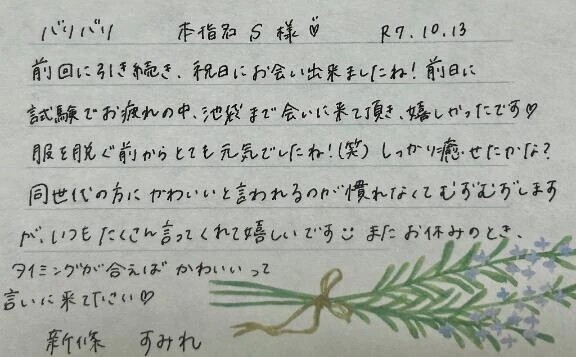 バリバリ 本指名 S 様♡ R7.10.13
前回に引き続き、祝日にお会い出来ましたね！前日に
試験でお疲れの中、池袋まで会いに来て頂き、嬉しかったです♡
服を脱ぐ前からとても元気でしたね！(笑) しっかり癒せたかな？
同世代の方にかわいいと言われるのが慣れなくてむずむずします
が、いつもたくさん言ってくれて嬉しいです☺ またお休みのとき、
タイミングが合えばかわいいって
言いに来て下さい♡
新條 すみれ